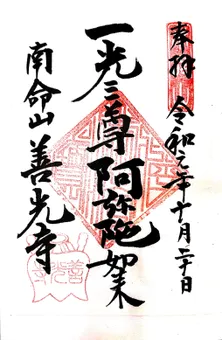 奉拝 令和元年十月二十日
一光三尊阿弥陀如来
南命山 善光寺